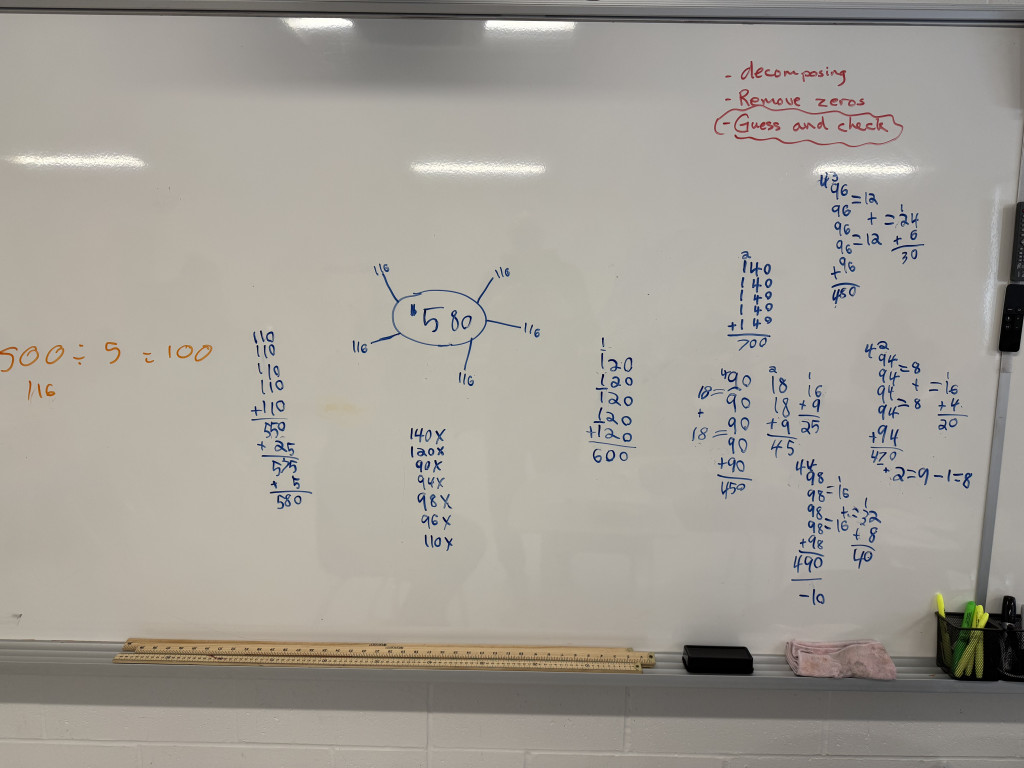 - decomposing
- Remove zeros
- Guess and check
500 ÷ 5 = 100
116
110
110
110
110
+110
550
+ 25
575
+ 5
580
116
116
580
116
116
116
140x
120x
90x
94x
98x
96x
110x
1
120
120
120
120
+120
600
2
140
140
140
140
+140
700
4
90
18= 90
+
18= 90
90
+90
450
2
18
18
+9
45
1
16
+9
25
43
96 =12
96 + = 24
96
96 =12
+96
480
1
24
+ 6
30
42
94 =8
94 + = 16
94
94 =8
+94
470
1
16
+4
20
+2=9-1=8
44
98
98 =16
98 + = 32
98 =16
+98
490
-10
1
32
+ 8
40